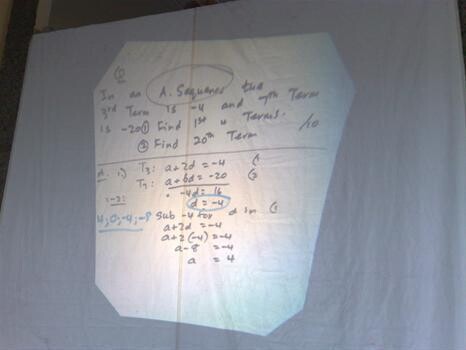 Q
In an A. Sequence the
3rd Term is -4 and 7th Term
is -20 ① Find 1st 4 Terms.
② Find 20th Term /10
1) T3: a+2d = -4 (1
T7: a+6d = -20 (2
-4d = 16
d = -4
4; 0; -4; -8 Sub -4 for d in (1
a+2d = -4
a+2(-4) = -4
a-8 = -4
a = 4